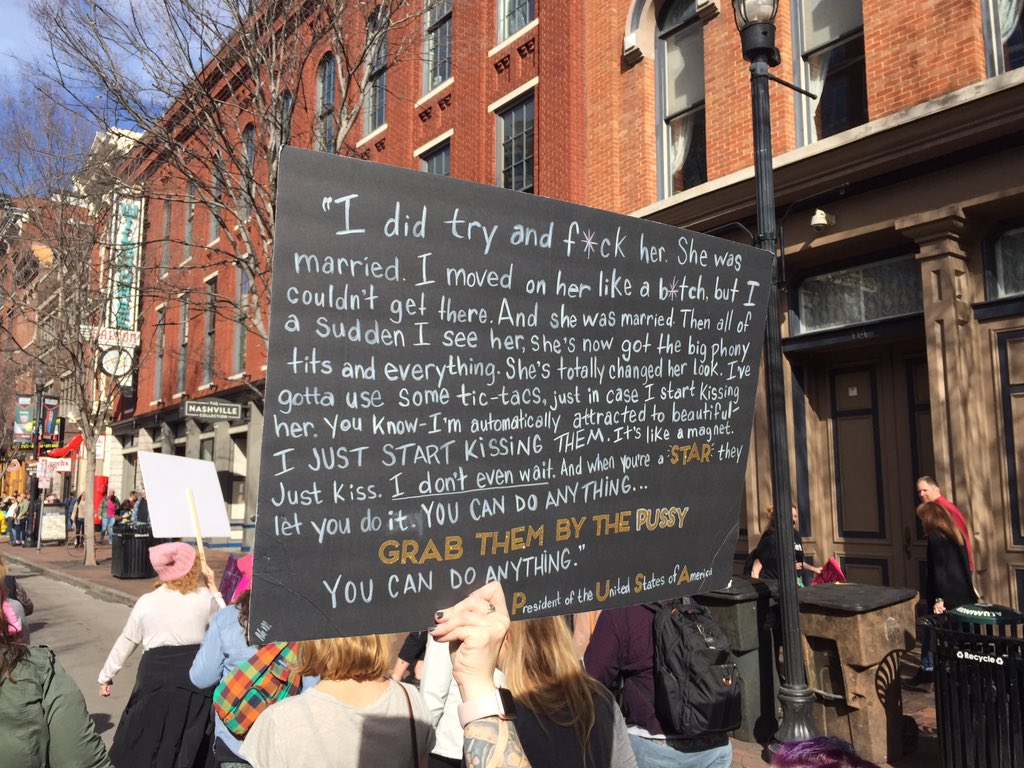 "I did try and f*ck her. She was
married. I moved on her like a b*tch, but I
couldn't get there. And she was married. Then all of
a sudden I see her, she's now got the big phony
tits and everything. She's totally changed her look. I've
gotta use some tic-tacs, just in case I start kissing
her. You know-I'm automatically attracted to beautiful-
I JUST START KISSING THEM. It's like a magnet.
Just Kiss. I don't even wait. And when you're a STAR they
let you do it. YOU CAN DO ANYTHING...
GRAB THEM BY THE PUSSY
YOU CAN DO ANYTHING."
President of the United States of America
THE
NASHVILLE
COLLECTION
Recycle